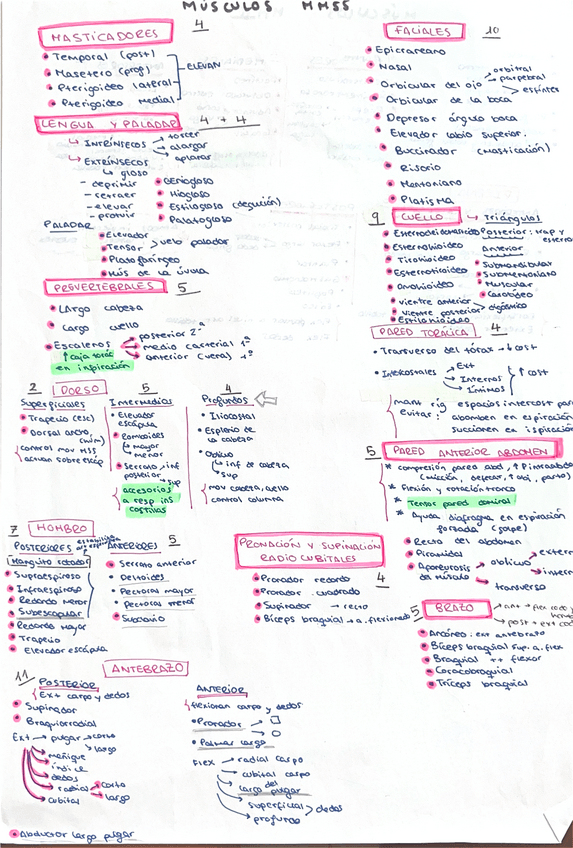 MÚSCULOS MMSS
MASTICADORES 4
Temporal (post)
Masetero (prof)
Pterigoideo lateral
Pterigoideo medial
ELEVAN
LENGUA Y PALADAR 4 + 4
INTRÍNSECOS
torcer
alargar
aplanar
EXTRÍNSECOS
gloso
- deprimir
- retraer
- elevar
- protruir
Geniogloso
Hiogloso
Estilogloso (deglución)
Palatogloso
PALADAR
Elevador
Tensor
velo paladar
Platofaríngeo
Mús de la úvula
PREVERTEBRALES 5
Largo cabeza
Largo cuello
Escalenos
posterior 2ª
medio
anterior
1ª
↑ caja torác
en inspiración
2 DORSO
Superficiales
Trapecio (esc)
Dorsal ancho
control mov MSS
5
Intermedios
Elevador
escápula
Romboides
mayor
menor
Serrato inf
posterior sup
accesorios
a resp ins
costillas
4
Profundos
Iliocostal
Esplenio de
la cabeza
Oblicuo
inf de cabeza
sup
mov cabeza, cuello
control columna
7 HOMBRO
POSTERIORES
Manguito rotador
Supraespinoso
Infraespinoso
Redondo menor
Subescapular
Redondo mayor
Trapecio
Elevador escápula
ANTERIORES 5
Serrato anterior
Deltoides
Pectoral mayor
Pectoral menor
Subclavio
FACIALES 10
Epicraneano
Nasal
Orbicular del ojo
orbital
parpebral
esfínter
Orbicular de la boca
Depresor ángulo boca
Elevador labio superior.
Buccinador (masticación)
Risorio
Mentoniano
Platisma
9 CUELLO → Triángulos
Esternocleidomastoideo
Esternohioideo
Tirohioideo
Esternotiroideo
Omohioideo
vientre anterior
vientre posterior
digástrico
Estilohioideo
Posterior:
Anterior
Submandibular
Submentoniano
Muscular
Carotídeo
PARED TORÁCICA 4
Transverso del tórax → ↓ cost
Intercostales
Ext
Internos
Íntimos
↑ cost
mant rig espacios intercost
evitar: abomben en espiración
succionen en inspiración
5 PARED ANTERIOR ABDOMEN
* compresión pared abd, ↑ P intraabd
(micción, defecar, parto)
* Flexión y rotación tronco
* Tensar pared
* Ayuda diafragma en espiración
forzada
Recto del abdomen
Piramidal
Aponeurosis
oblicuo
extern
intern
transverso
PRONACIÓN Y SUPINACIÓN
RADIO CUBITALES
4
Pronador redondo
Pronador cuadrado
Supinador → recto
Bíceps braquial → a. flexionado
5 BRAZO
Ancóneo: ext antebrazo
Bíceps braquial Sup. a. flex
Braquial ++ flexor
Coracobraquial
Tríceps braquial
11 ANTEBRAZO
POSTERIOR
Ext carpo y dedos
Supinador
Braquiorradial
Ext → pulgar → corto
largo
meñique
índice
dedos
radial → corto
largo
cubital
Abductor largo pulgar
ANTERIOR
flexionan carpo y dedos
Pronador
Palmar largo
FLEX → radial carpo
cubital carpo
largo del
pulgar
superficial
profundo
dedos